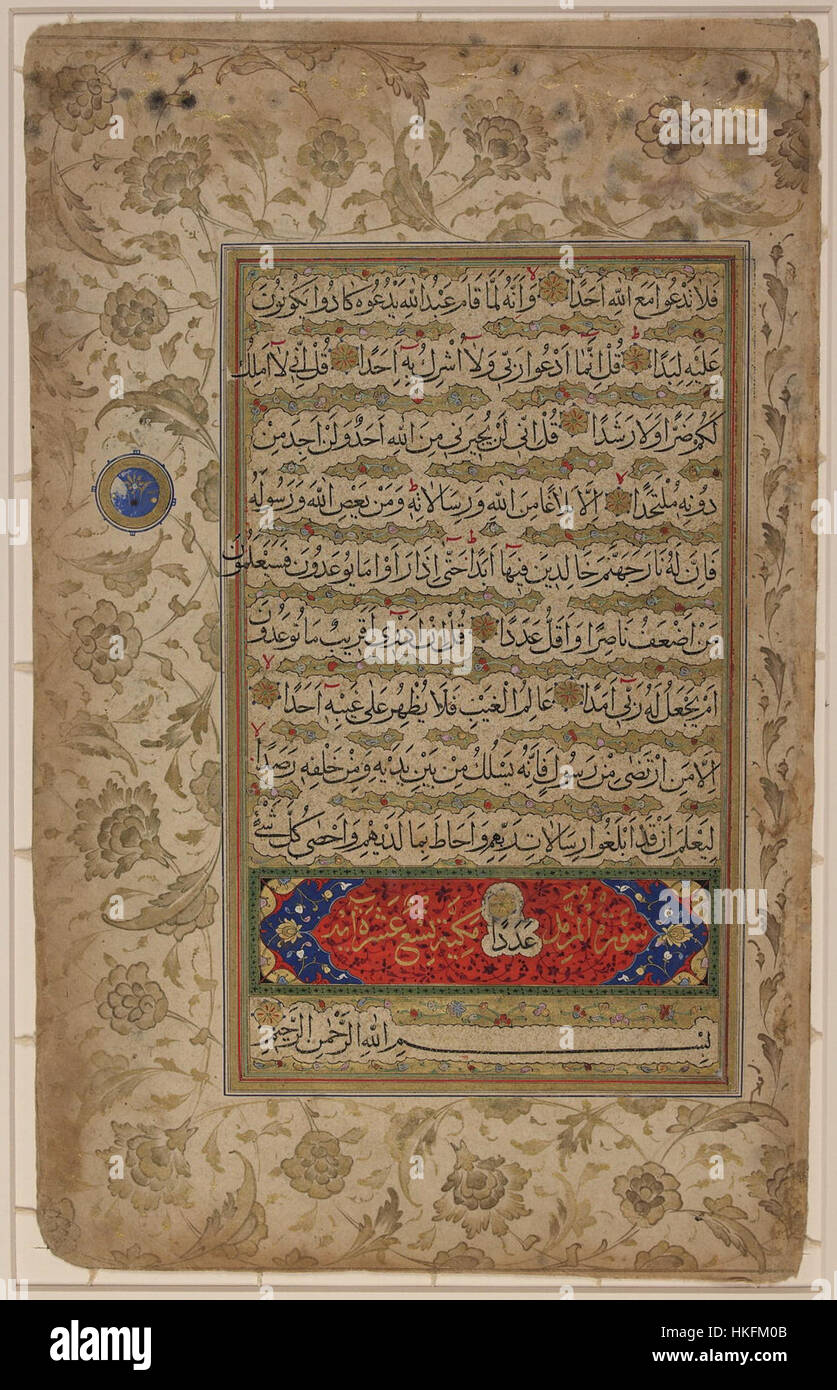 فَلَا تَدْعُوا مَعَ اللّٰهِ اَحَدًا وَاَنَّهُ لَمَّا قَامَ عَبْدُ اللّٰهِ يَدْعُوهُ كَادُوا يَكُونُونَ
عَلَيْهِ لِبَدًا قُلْ اِنَّمَا اَدْعُوا رَبّى وَلَا اُشْرِكُ بِهِ اَحَدًا قُلْ اِنّى لَا اَمْلِكُ
لَكُمْ ضَرًّا وَلَا رَشَدًا قُلْ اِنّى لَنْ يُجِيرَنى مِنَ اللّٰهِ اَحَدٌ وَلَنْ اَجِدَ مِنْ
دُونِهِ مُلْتَحَدًا اِلَّا بَلَاغًا مِنَ اللّٰهِ وَرِسَالَاتِهِ وَمَنْ يَعْصِ اللّٰهَ وَرَسُولَهُ
فَاِنَّ لَهُ نَارَ جَهَنَّمَ خَالِدِينَ فِيهَا اَبَدًا حَتّٰى اِذَا رَاَوْا مَا يُوعَدُونَ فَسَيَعْلَمُونَ
مَنْ اَضْعَفُ نَاصِرًا وَاَقَلُّ عَدَدًا قُلْ اِنْ اَدْرى اَقَرِيبٌ مَا تُوعَدُونَ
اَمْ يَجْعَلُ لَهُ رَبّى اَمَدًا عَالِمُ الْغَيْبِ فَلَا يُظْهِرُ عَلٰى غَيْبِهِ اَحَدًا
اِلَّا مَنِ ارْتَضٰى مِنْ رَسُولٍ فَاِنَّهُ يَسْلُكُ مِنْ بَيْنِ يَدَيْهِ وَمِنْ خَلْفِهِ رَصَدًا
لِيَعْلَمَ اَنْ قَدْ اَبْلَغُوا رِسَالَاتِ رَبِّهِمْ وَاَحَاطَ بِمَا لَدَيْهِمْ وَاَحْصٰى كُلَّ شَىْءٍ
سُورَةُ الْمُزَّمِّلِ عَدَدًا مَكِّيَّةٌ تِسْعَ عَشْرَةَ اٰيَةً
بِسْمِ اللّٰهِ الرَّحْمٰنِ الرَّحِيمِ
alamy
Image ID: HKFM0B
www.alamy.com